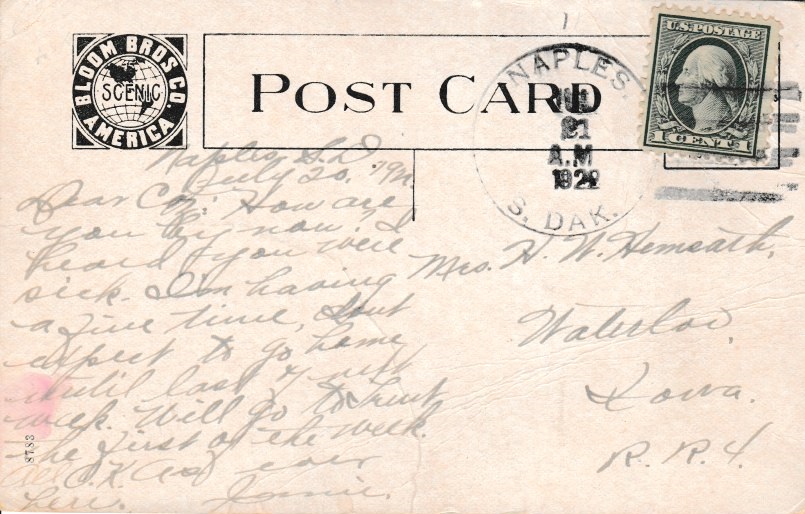 BLOOM BROS. CO
SCENIC
AMERICA
POST CARD
NAPLES.
21
A.M
192
S. DAK.
U.S. POSTAGE
1 CENT 1
Naples S.D.
July 20, 192
Dear Coz: How are
you by now, I
heard you were
sick. I'm having
a fine time, don't
expect to go home
until last of next
week. Will go to
the first of the week.
All O.K. as ever
here. Jennie.
Mrs. H. W. Hemsath,
Waterloo,
Iowa.
R. R. 4.
8783